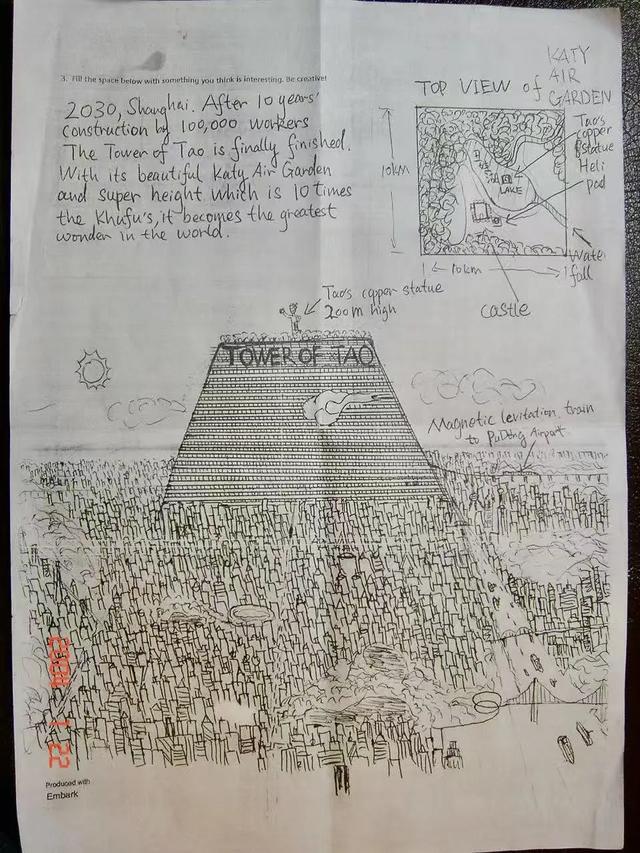 3. Fill the space below with something you think is interesting. Be creative!
2030, Shanghai. After 10 years'
construction by 100,000 workers
The Tower of Tao is finally finished.
With its beautiful Katy Air Garden
and super height which is 10 times
the Khufu's, it becomes the greatest
wonder in the world.
TOP VIEW of KATY
AIR
GARDEN
Tao's
copper
statue
Heli
pad
LAKE
10km
Water
fall
10km
castle
Tao's copper statue
200m high
TOWER OF TAO
Magnetic levitation train
to PuDong Airport
Produced with
Embark